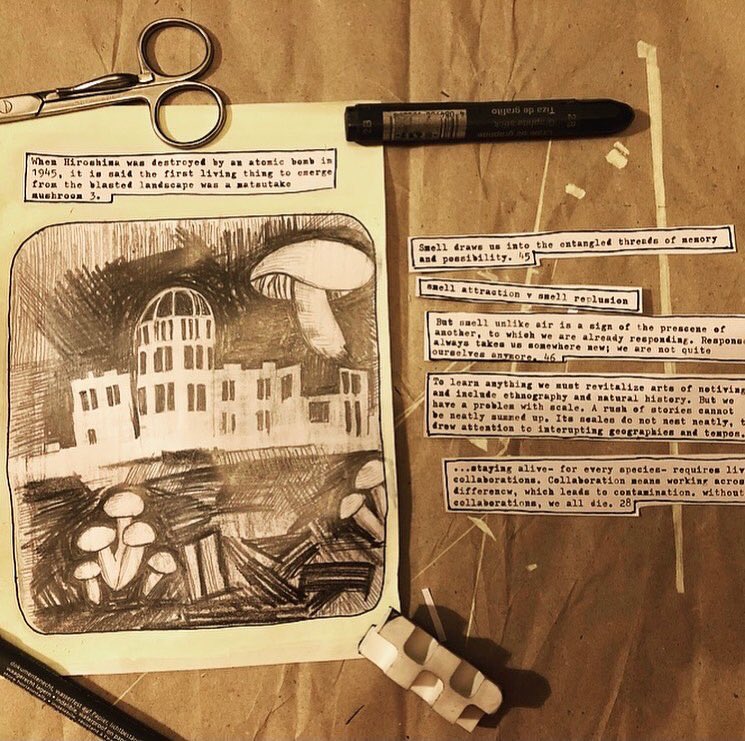 When Hiroshima was destroyed by an atomic bomb in
1945, it is said the first living thing to emerge
from the blasted landscape was a matsutake
mushroom 3.
2B
Tiza de grafito
2B
Smell draws us into the entangled threads of memory
and possibility. 45
smell attraction v smell replusion
But smell unlike air is a sign of the prescene of
another, to which we are already responding. Respons
always takes us somewhere new; we are not quite
ourselves anymore. 46
To learn anything we must revitalize arts of notiving
and include ethnography and natural history. But we
have a problem with scale. A rush of stories cannot
be neatly summed up. Its scales do not nest neatly, t
drew attention to interupting geographies and tempos.
...staying alive- for every species- requires liv
collaborations. Collaboration means working acros
differencw, which leads to contamination. without
collaborations, we all die. 28
dokumentenecht, wasserfest auf Papier, lichtbestän
waagerecht lagern • indelible, waterproof on pap